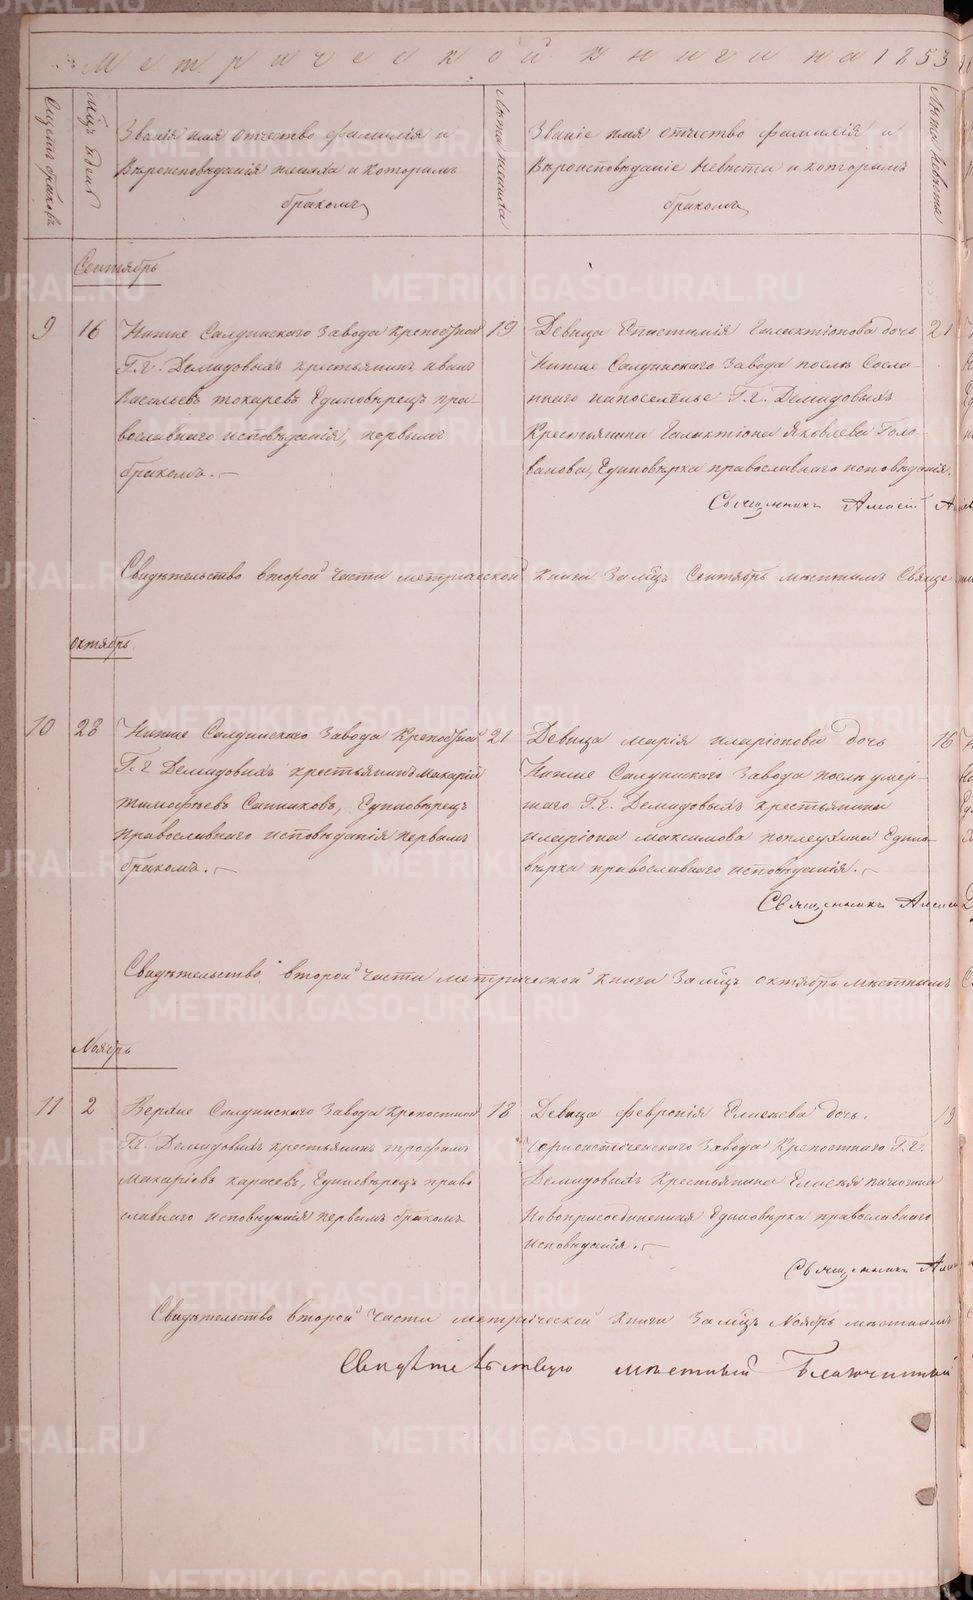 Метрической книги на 1853
Счетъ браковъ
Мцъ и день
Званіе имя отчество фамилія и
Вѣроисповѣданія жениха и которымъ
бракомъ
Лѣта жениха
Званіе имя отчество фамилія и
Вѣроисповѣданіе Невѣсты и которымъ
бракомъ
Лѣта Невѣсты
Сентябрь
9 16 Нижне Салдинскаго Завода Крепостной 19
Г.г. Демидовыхъ крестьянинъ иванъ
Васильевъ токаревъ Единовѣрецъ пра-
вославнаго исповѣданія, первымъ
бракомъ.
Девица Епистимія Галактіонова дочь 21
Нижне Салдинскаго Завода послѣ Сосла-
ннаго напоселенье Г.г. Демидовыхъ
Крестьянина Галактіона Яковлева Голо-
ванова, Единовѣрка православнаго исповѣданія.
Священникъ Алексій
Свидѣтельство второй части метрической книги За мцъ Сентябрь мѣстнымъ Свяще
октябрь
10 28 Нижне Салдинскаго Завода Крепостной 21
Г.г Демидовыхъ крестьянинъ макарій
тимофѣевъ Ситниковъ, Единовѣрецъ
православнаго исповѣданія первымъ
бракомъ.
Девица марія иларіонова дочь 16
Нижне Салдинскаго Завода послѣ умер-
шаго Г.г. Демидовыхъ крестьянина
илaріона максимова поплеухина Едино-
вѣрка православнаго исповѣданія.
Священникъ Алексій
Свидѣтельство второй части метрической книги За мцъ октябрь мѣстнымъ
Ноябрь
11 2 Верхне Салдинскаго Завода Крепостной 18
Г.г. Демидовыхъ крестьянинъ трофимъ
макаріевъ карасевъ, Единовѣрецъ право
славнаго исповѣданія первымъ бракомъ
Девица февронія Елисѣева дочь. 19
Черноисточенскаго Завода Крепостнаго Г.г.
Демидовыхъ Крестьянина Елисѣя
Новоприсоединенная Единовѣрка православнаго
исповѣданія.
Священникъ
Свидѣтельство второй части метрической книги За мцъ Ноябрь мѣстнымъ
Свидѣтельствую мѣстный Благочинный
METRIKI.GASO-URAL.RU